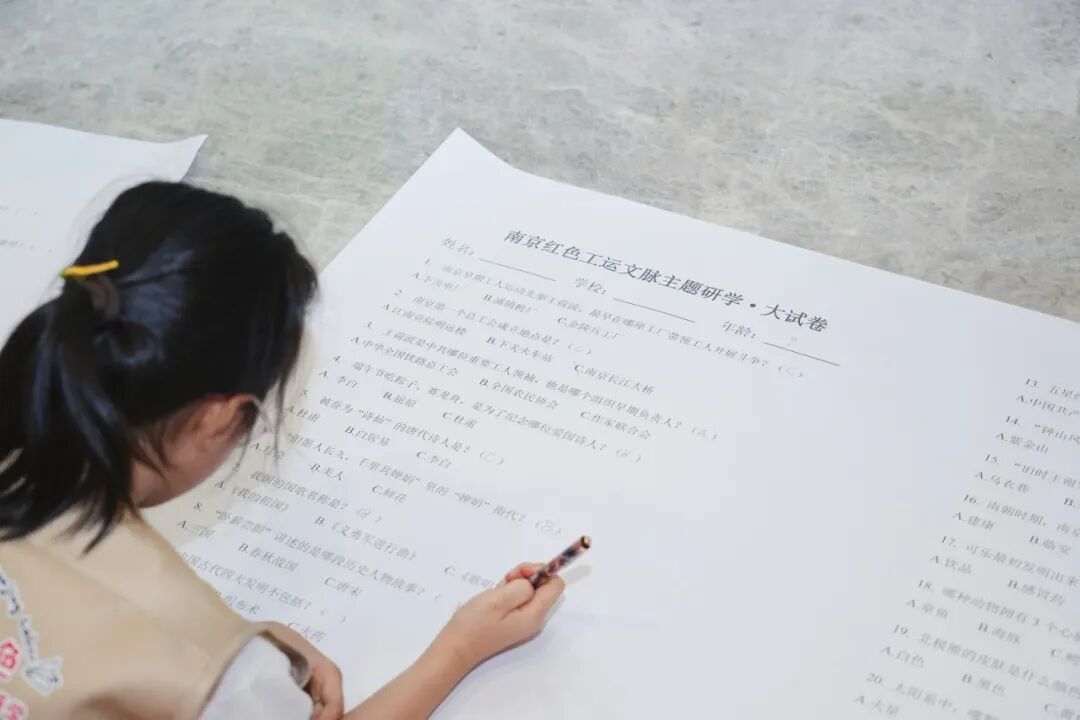 南京红色工运文脉主题研学·大试卷
姓名： 学校： 年龄：
1. 南京早期工人运动先驱王荷波，最早在哪座工厂带领工人开展斗争？（C）
A.下关电厂 B.浦镇机厂 C.金陵兵工厂
2. 南京第一个总工会成立地点是？（C）
A.江南贡院明远楼 B.下关大车站 C.南京长江大桥
3. 王荷波是中共哪位重要工人领袖，他是哪个组织早期负责人？（A）
A.中华全国铁路总工会 B.全国农民协会 C.作家联合会
4. 端午节吃粽子、赛龙舟，是为了纪念哪位爱国诗人？（B）
A.李白 B.屈原 C.杜甫
5. 被誉为“诗仙”的唐代诗人是？（C）
A.杜甫 B.白居易 C.李白
“但愿人长久，千里共婵娟”里的“婵娟”指代？（B）
B.美人 C.鲜花
我国的国歌名称是？（B）
A.《我的祖国》 B.《义勇军进行曲》 C.《歌唱
8. “卧薪尝胆”讲述的是哪段历史人物故事？（
A.三国 B.春秋战国 C.唐宋
国古代四大发明不包括？（ ）
C.火药
13. 五星红
A.中国共产
14. “钟山风
A.紫金山
15. “旧时王谢
A.乌衣巷 B.
16. 南朝时期，南京
A.建康 B.临安
17. 可乐最初发明出来
A.饮品 B.感冒药
18. 哪种动物拥有3个心脏
A.章鱼 B.海豚 C.
19. 北极熊的皮肤是什么颜色
A.白色 B.黑色 C.
20. 太阳系中，
A.火星